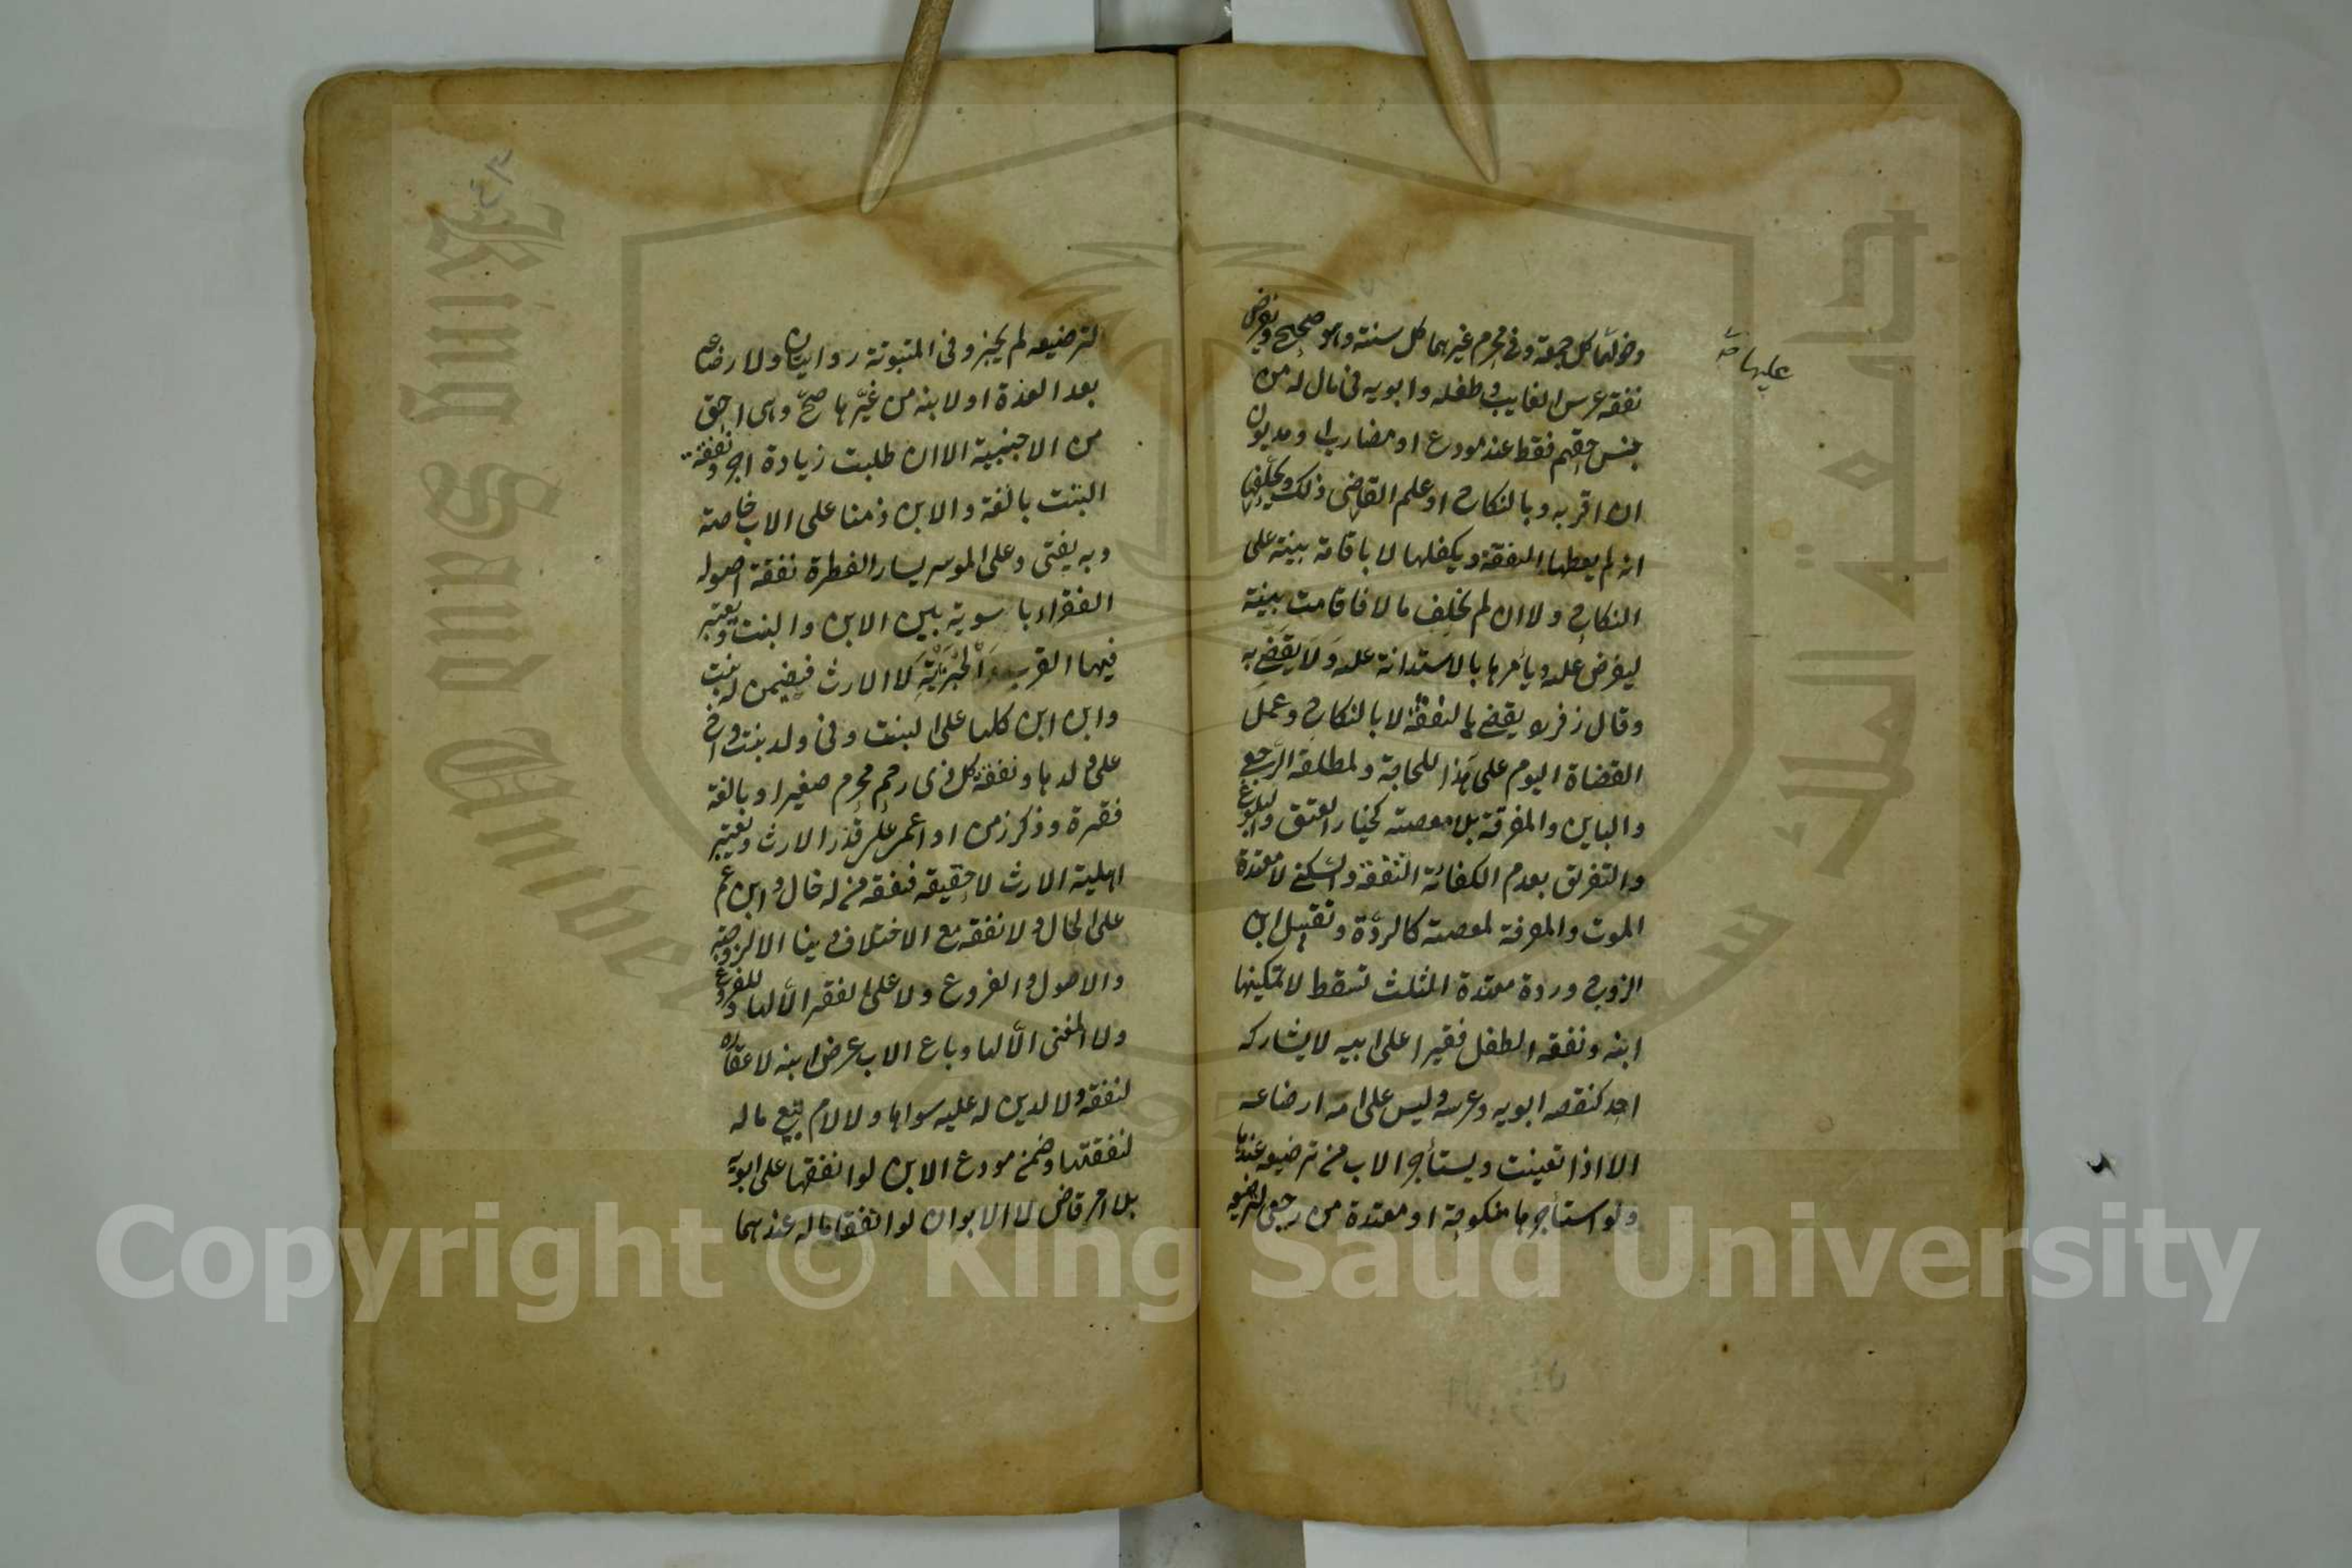 عليها
ودخولها كل جمعة وفى محرم غيرهما كل سنة وهو صحيح ويفرض
نفقه عرس الغايب وطفله وابويه فى مال له من
جنس حقهم فقط عند مودع او مضارب او مديون
ان اقر به وبالنكاح او علم القاضى ذلك ويحلفها
انه لم يعطها النفقة ويكفلها لا باقامة بينة على
النكاح ولا ان لم يخلف مالا فاقامت بينة
ليفرض عليه ويأمرها بالاستدانة عليه ولا يقضى به
وقال زفر يقضى بالنفقة لا بالنكاح وعمل
القضاة اليوم على هذا للحاجة ولمطلقة الرجعى
والباين والمفرقة بلا معصية كخيار العتق والبلوغ
والتفريق بعدم الكفائة النفقة والسكنى لا معتدة
الموت والمفرقة لمعصية كالردة وتقبيل ابن
الزوج وردة معتدة الثلث تسقط لا تمكينها
ابنه ونفقه الطفل فقيرا على ابيه لا يشاركه
احد كنفقه ابويه وعرسه وليس على امه ارضاعه
الا اذا تعينت ويستأجر الاب من ترضعه عندها
ولو استأجرها منكوحة او معتدة من رجعى لترضعه
٤٣
لترضيعه لم يجز وفى المبتوتة روايتان ولارضاعه
بعد العدة او لابنه من غيرها صح وهى احق
من الاجنبية الا ان طلبت زيادة اجر ونفقة
البنت بالغة والابن زمنا على الاب خاصة
وبه يفتى وعلى الموسر يسار الفطرة نفقة اصوله
الفقراء بالسوية بين الابن والبنت ويعتبر
فيها القرب والجزئية لا الارث فيمن له بنت
وابن ابن كلها على البنت وفى ولد بنت واخ
على ولدها ونفقة كل ذى رحم محرم صغير او بالغة
فقيرة وذكر زمن او اعمى على قدر الارث ويعتبر
اهلية الارث لا حقيقه فنفقه من له خال وابن عم
على الخال ولا نفقه مع الاختلاف دينا الا للزوجة
والاصول والفروع ولا على الفقير الا لها وللفروع
ولا لغنى الا لها وباع الاب عرض ابنه لا عقاره
لنفقه ولا لدين له عليه سواها ولا للام بيع ماله
لنفقتها وضمن مودع الابن لو انفقها على ابويه
بلا امر قاض لا الابوان لو انفقا ماله عندهما
Copyright © King Saud University